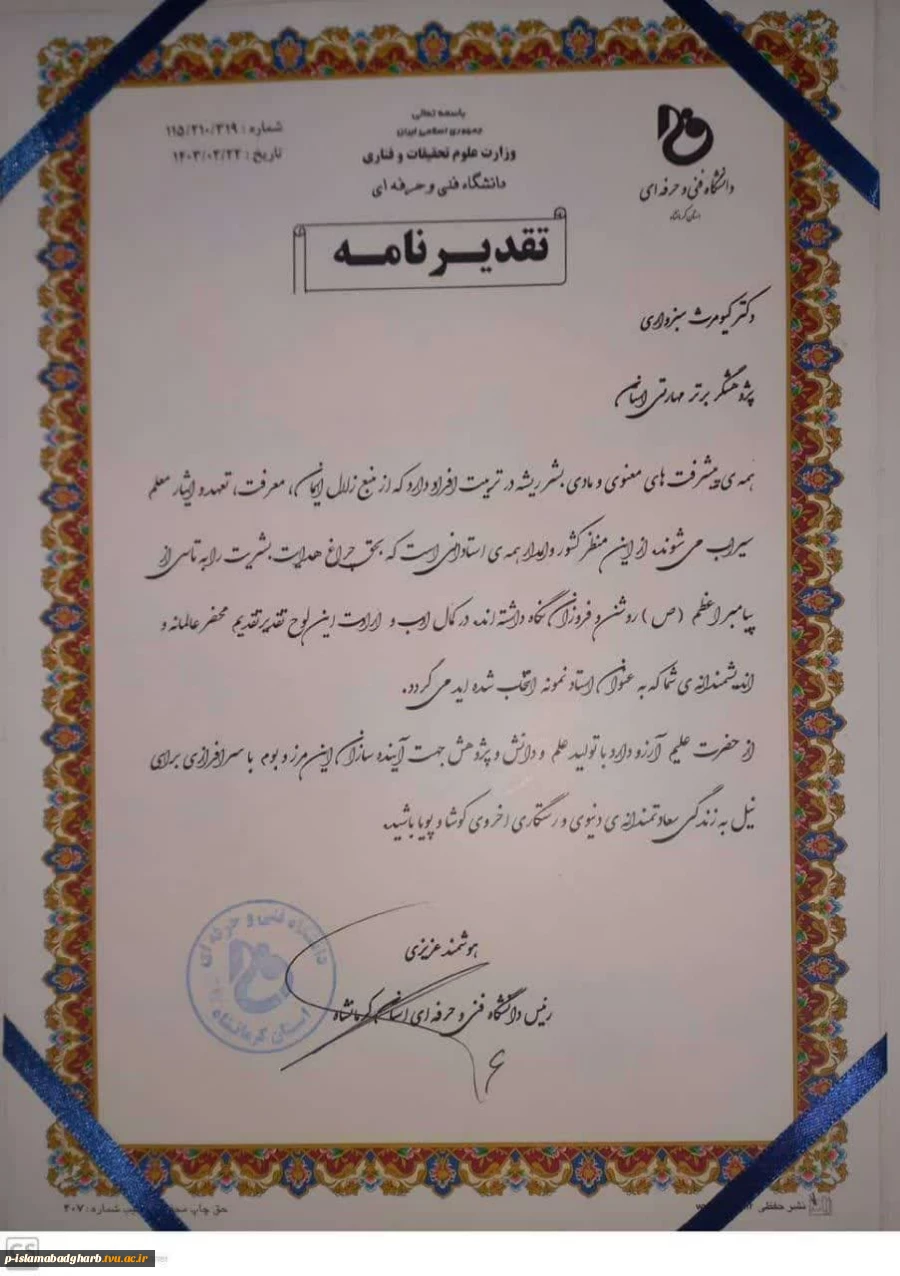 باسمه تعالی
جمهوری اسلامی ایران
وزارت علوم تحقیقات و فناوری
دانشگاه فنی و حرفه ای
شماره : ۱۱۵/۲۱۰/۳۱۹
تاریخ : ۱۴۰۳/۰۲/۲۲
دانشگاه فنی و حرفه ای
استان کرمانشاه
تقدیر نامه
دکتر کیومرث سبزواری
پژوهشگر برتر مهارتی استان
همه ی پیشرفت های معنوی و مادی بشر ریشه در تربیت افراد دارد که از منبع زلال ایمان، معرفت، تعهد و ایثار معلم
سیراب می شوند. از این منظر کشور وامدار همه ی استادانی است که بحق چراغ هدایت بشریت را به تاسی از
پیامبر اعظم (ص) روشن و فروزان نگاه داشته اند. در کمال ادب و ارادت این لوح تقدیر تقدیم محضر عالمانه و
اندیشمندانه ی شما که به عنوان استاد نمونه انتخاب شده اید می گردد.
از حضرت علیم آرزو دارد با تولید علم و دانش و پژوهش جهت آینده سازان این مرز و بوم با سرافرازی برای
نیل به زندگی سعادتمندانه ی دنیوی و رستگاری اخروی کوشا و پویا باشید.
هوشمند عزیزی
رئیس دانشگاه فنی و حرفه ای استان کرمانشاه
دانشگاه فنی و حرفه ای
استان کرمانشاه
نشر حفظی
حق چاپ شماره: ۲۰۷
p-islamabadgharb.tvu.ac.ir